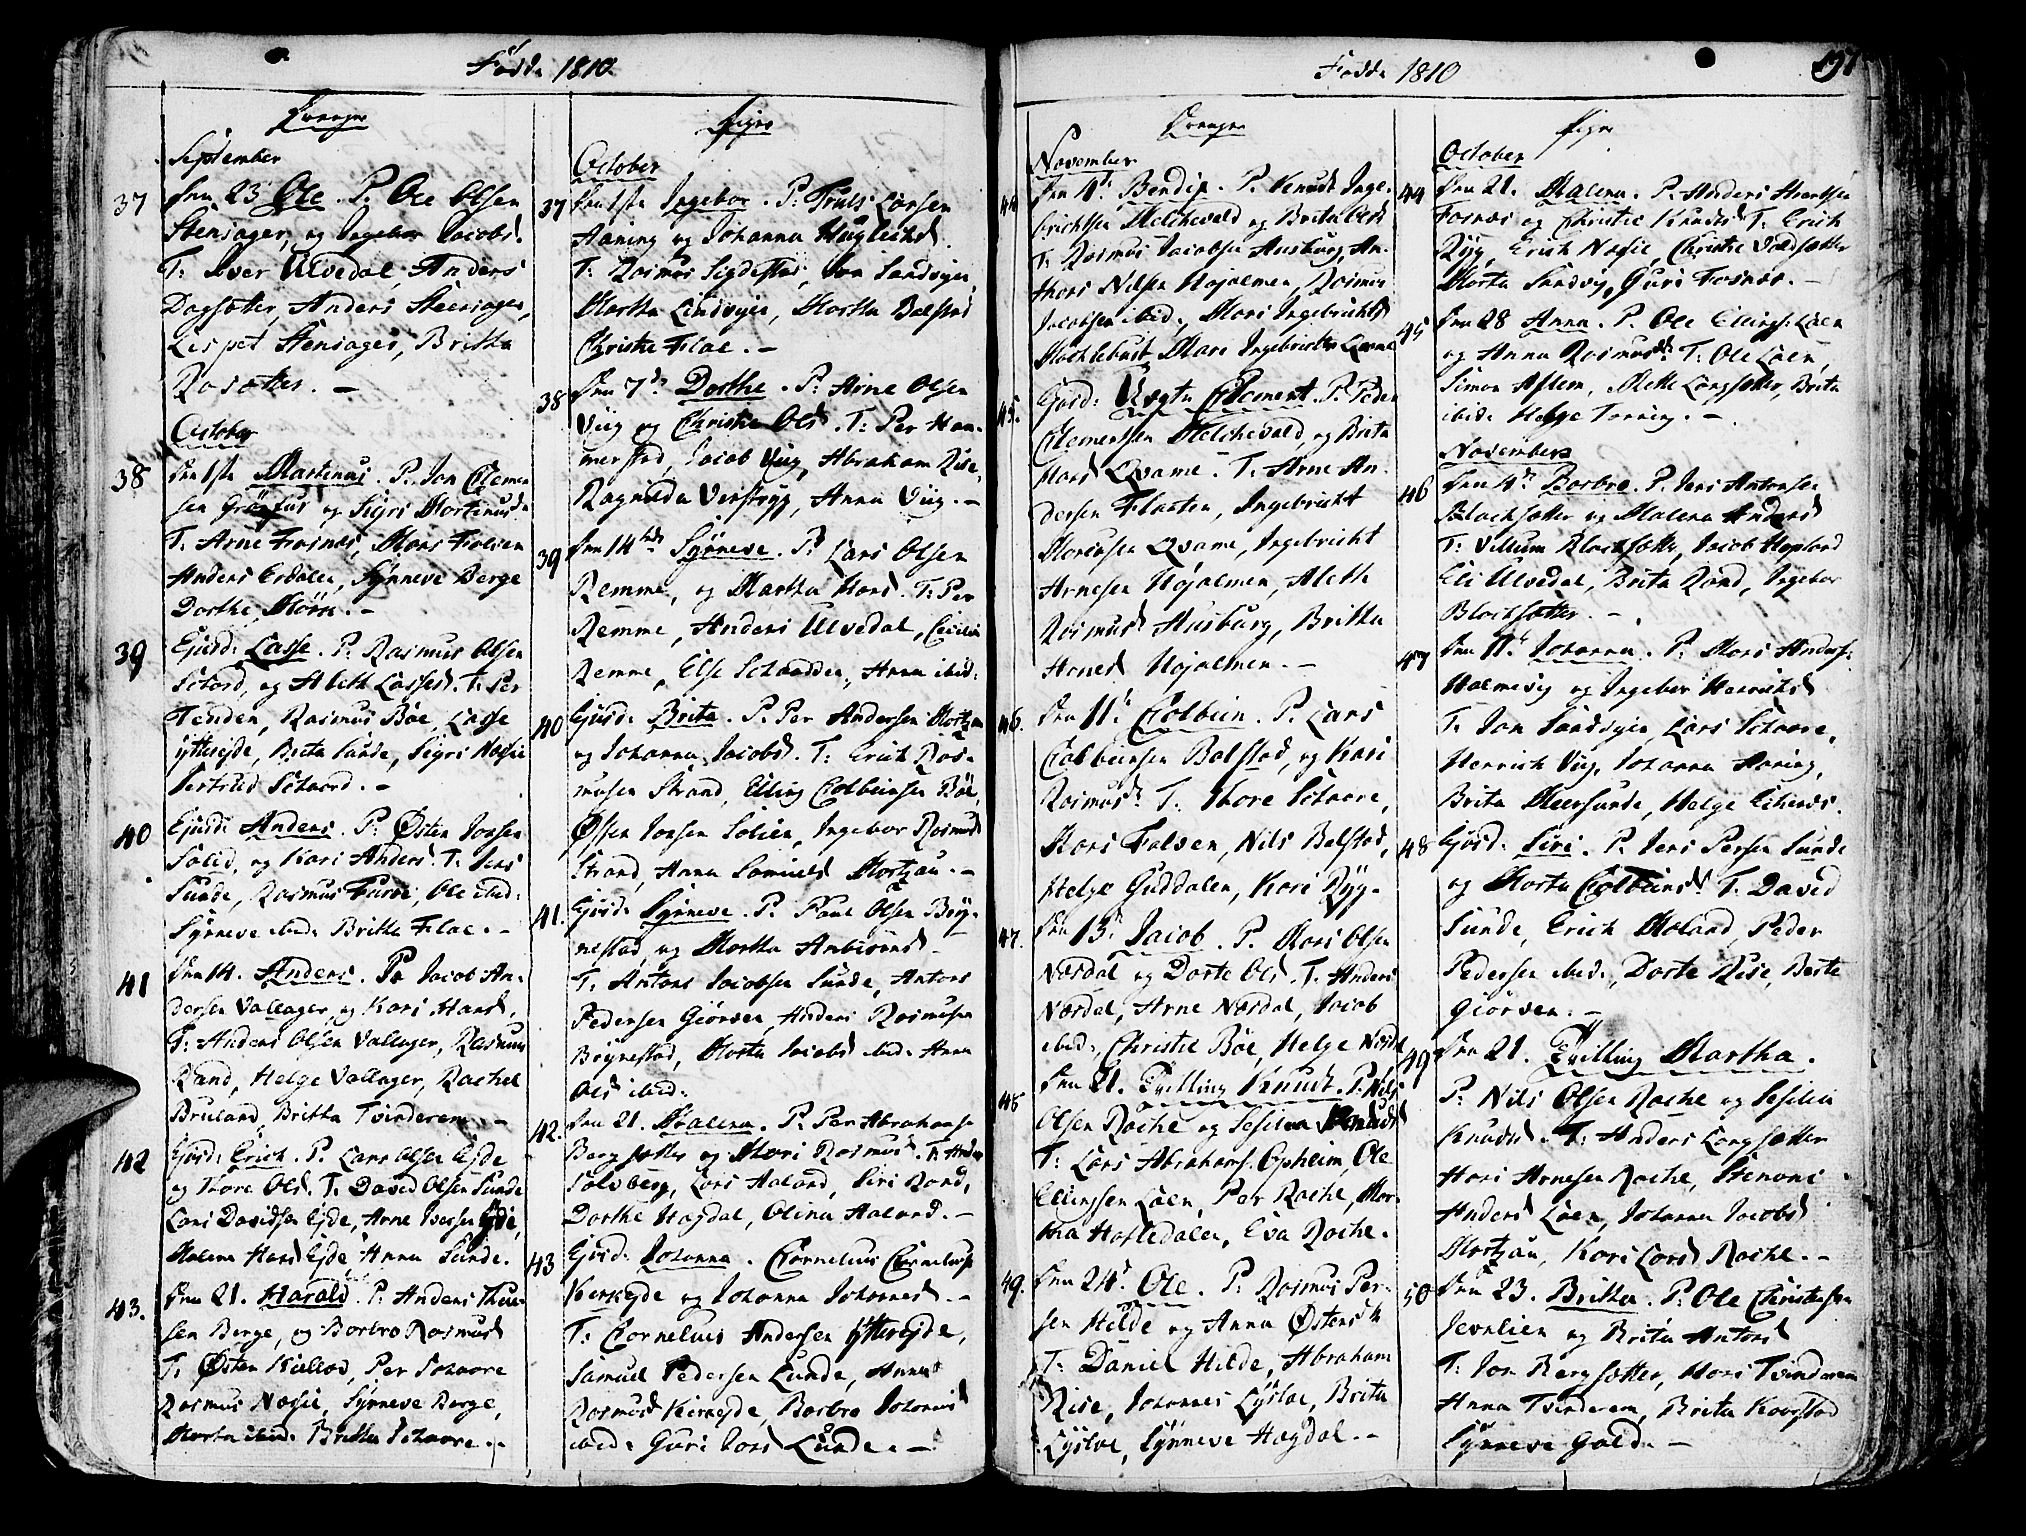 Fødde 1810.
Drenge
September
37 Den 23 Ole. P. Ole Olsen
Stensager, og Ingebor Jacobsd.
T: Iver Ulvedal, Anders
Dagsæter, Anders Stensager,
Lispet Stensager, Britha
Rosætter. –
October
38 Den 1ste Martinus. P. Jon Clemen
sen og Sigri Mortensd.
T. Arne Fosnæs, Hans Folven
Anders Erdalen, Synneve Berge
Dorthe Mørk. –
39 Ejusd: Lasse. P. Rasmus Olsen
Schord, og Aleth Lassesd. T. Per
Tenden, Rasmus Böe, Lasse
ytterejde, Brita Sunde, Sigri Næsie
Gertrud Schaard. –
40 Ejusd: Anders. P: Østen Jonsen
Solid, og Kari Andersd. T. Jens
Sunde, Rasmus Furre, Ole ibid:
Synneve ibid: Britha Flae. –
41 Den 14. Anders. P. Jacob An-
dersen Vallager, og Kari Hansd.
T: Anders Olsen Vallager, Rasmus
Rand, Helge Vallager, Rachel
Bruland, Britha Tvinderem. –
42 Ejusd: Erich. P. Lars Olsen Ejde
og Thore Olsd. T. David Olsen Sunde
Lars Davidsen Ejde, Arne Iversen Ejde,
Malene Hansd Ejde Anna Sunde.
43. Den 21. Harald. P: Anders Thu-
sen Berge, og Borbro Rasmusd
T. Østen Kiellod, Per Schaare
Rasmus Næsie, Synneve Berge,
Martha ibid: Britha Schaare. –
Piger
October
37 Den 1ste Ingebor. P: Truls Larsen
Aaning og Johanna Huglechsd.
T. Rasmus Sigdestad, Jon Sandvigen
Martha Lindvigen, Martha Bolstad
Christie Flae. –
38 Den 7de Dorthe. P: Arne Olsen
Viig og Christie Olsd. T: Per Ham-
merstad, Jacob Viig, Abraham Rise,
Ragnilda Verstryg, Anna Viig. –
39 Den 14de Synneve. P. Lars Olsen
Remme, og Martha Hansd. T: Per
Remme, Anders Ulvedal, Cecilia
Remme, Else Schaadden, Anna ibid:
40 Ejusd: Brita. P. Per Andersen Mortzau
og Johanna Jacobsd. T: Erich Ras-
musen Strand, Elling Colbeinsen Böe,
Østen Jonsen Solien, Ingebor Rasmusd
Strand, Anna Samuelsd Mortzau. –
41. Ejusd: Synneve. P. Paul Olsen Böy-
nestad, og Martha Anbiørnsd –
T. Antons Jacobsen Sunde, Antons
Pedersen Giörven, Anders Rasmusen
Böynestad, Marta Jacobsd ibid: Anna
Olsd ibid:
42. Den 21. Malena. P. Per Abrahamse
Bergsætter og Mari Rasmusd. T. Anders
Solvberg, Lars Aaland, Siri Rand,
Dorthe Hagdal, Olina Aaland. –
43 Ejusd: Johanna. Cornelius Corneliusen
Kirkejde og Johanna Johannesd. –
T: Cornelius Andersen ytterejde,
Samuel Pedersen Lunde, Anna
Rasmusd Kirkejde, Barbro Johannisd
ibid: Guri Larsd Lunde. –
Fødde 1810
197
Drenge
November
44 Den 4de Bendix. P. Knudt Inge-
brichtsen Melchevold og Brita
T. Rasmus Jacobsen Husburg, An-
Hans Nilsen Hojalmen, Rasmus
Jacobsen ibid: Mari Ingebrichtsd
Mochlebust Mari Ingebrichtsd Qvame
45. Ejusd: Clement. P. Peder
Clementsen Melchevold, og Brita
Hansd Qvame. T. Arne An-
dersen Flaten, Ingebricht
Mortensen Qvame, Ingebricht
Arnesen Hojalmen, Aleth
Rasmusd Husburg, Britha
Arnesd Hojalmen. –
46. Den 11. Colbein. P. Lars
Colbeinsen Bolstad, og Kari
Rasmusd. T. Thore Schaare,
Hans Folven, Nils Bolstad,
Helge Guddalen, Kari Ryg.
47. Den 13. Jacob. P. Hans Olsen
Nordal og Dorte Olsd. T. Anders
Nordal, Arne Nordal, Jacob
ibid:, Christie Böe, Helge Nordal
48 Den 21. Tvilling Knudt. P. Nils
Olsen Rache og Sesilia Knudsd
T: Lars Abrahams. Opheim, Ole
Ellingsen Loen, Per Rache, Mar-
tha Hostedalen, Eva Rache.
49. Den 24. Ole. P. Rasmus Per-
sen Hilde og Anna Østensd
T: Daniel Hilde, Abraham
Rise, Johannes Lyslae, Brita
Lyslae, Synneve Hagdal. –
Piger
October
44 Den 21. Malena. P. Anders
Fosnæs og Christie Knudsd T. Erich
Ryg, Erich Næsie, Christie Vedsætter
Marta Sandvig, Guri Fosnæs. –
45 Den 28 Anna. P. Ole Ellings. Loen
og Anna Rasmusd. T: Ole Loen,
Simon Aslem, Mette Langsætter, Brita
ibid: Helge Tonning. –
November
46 Den 4de Borbro. P. Jens Antonsen
Blachsætter og Malena Andersd
T: Villum Blachsætter, Jacob Hopland
Eli Ulvedal, Brita Rand, Ingebor
Blochsætter. –
47 Den 11. Johanna. P. Hans Anders.
Holmevig og Ingebor Henrichsd
T. Jon Sandvigen, Lars Schaare,
Henrich Viig, Johanna Aaning,
Brita Meersunde, Helge
48 Ejusd. Siri. P. Jens Persen Sunde
og Marta Colbeinsd. T. David
Sunde, Erich Moland, Peder
Pedersen ibid:, Dorte Rise, Berte
Giörven. –
49 Den 21. Tvilling Martha.
P. Nils Olsen Rache og Sesilia
Knudsd. T: Anders Langsætter
Hans Arnesen Rache,
Andersd Loen, Johanna Jacobsd
Mortzau, Kari Larsd Rache. –
50 Den 23. Britha. P: Ole Christensen
Jevnlien og Brita Antonsd
T: Jon Bergsætter, Hans Tvinderem
Anna Tvinderem, Brita Kovstad
Synneve Golde –